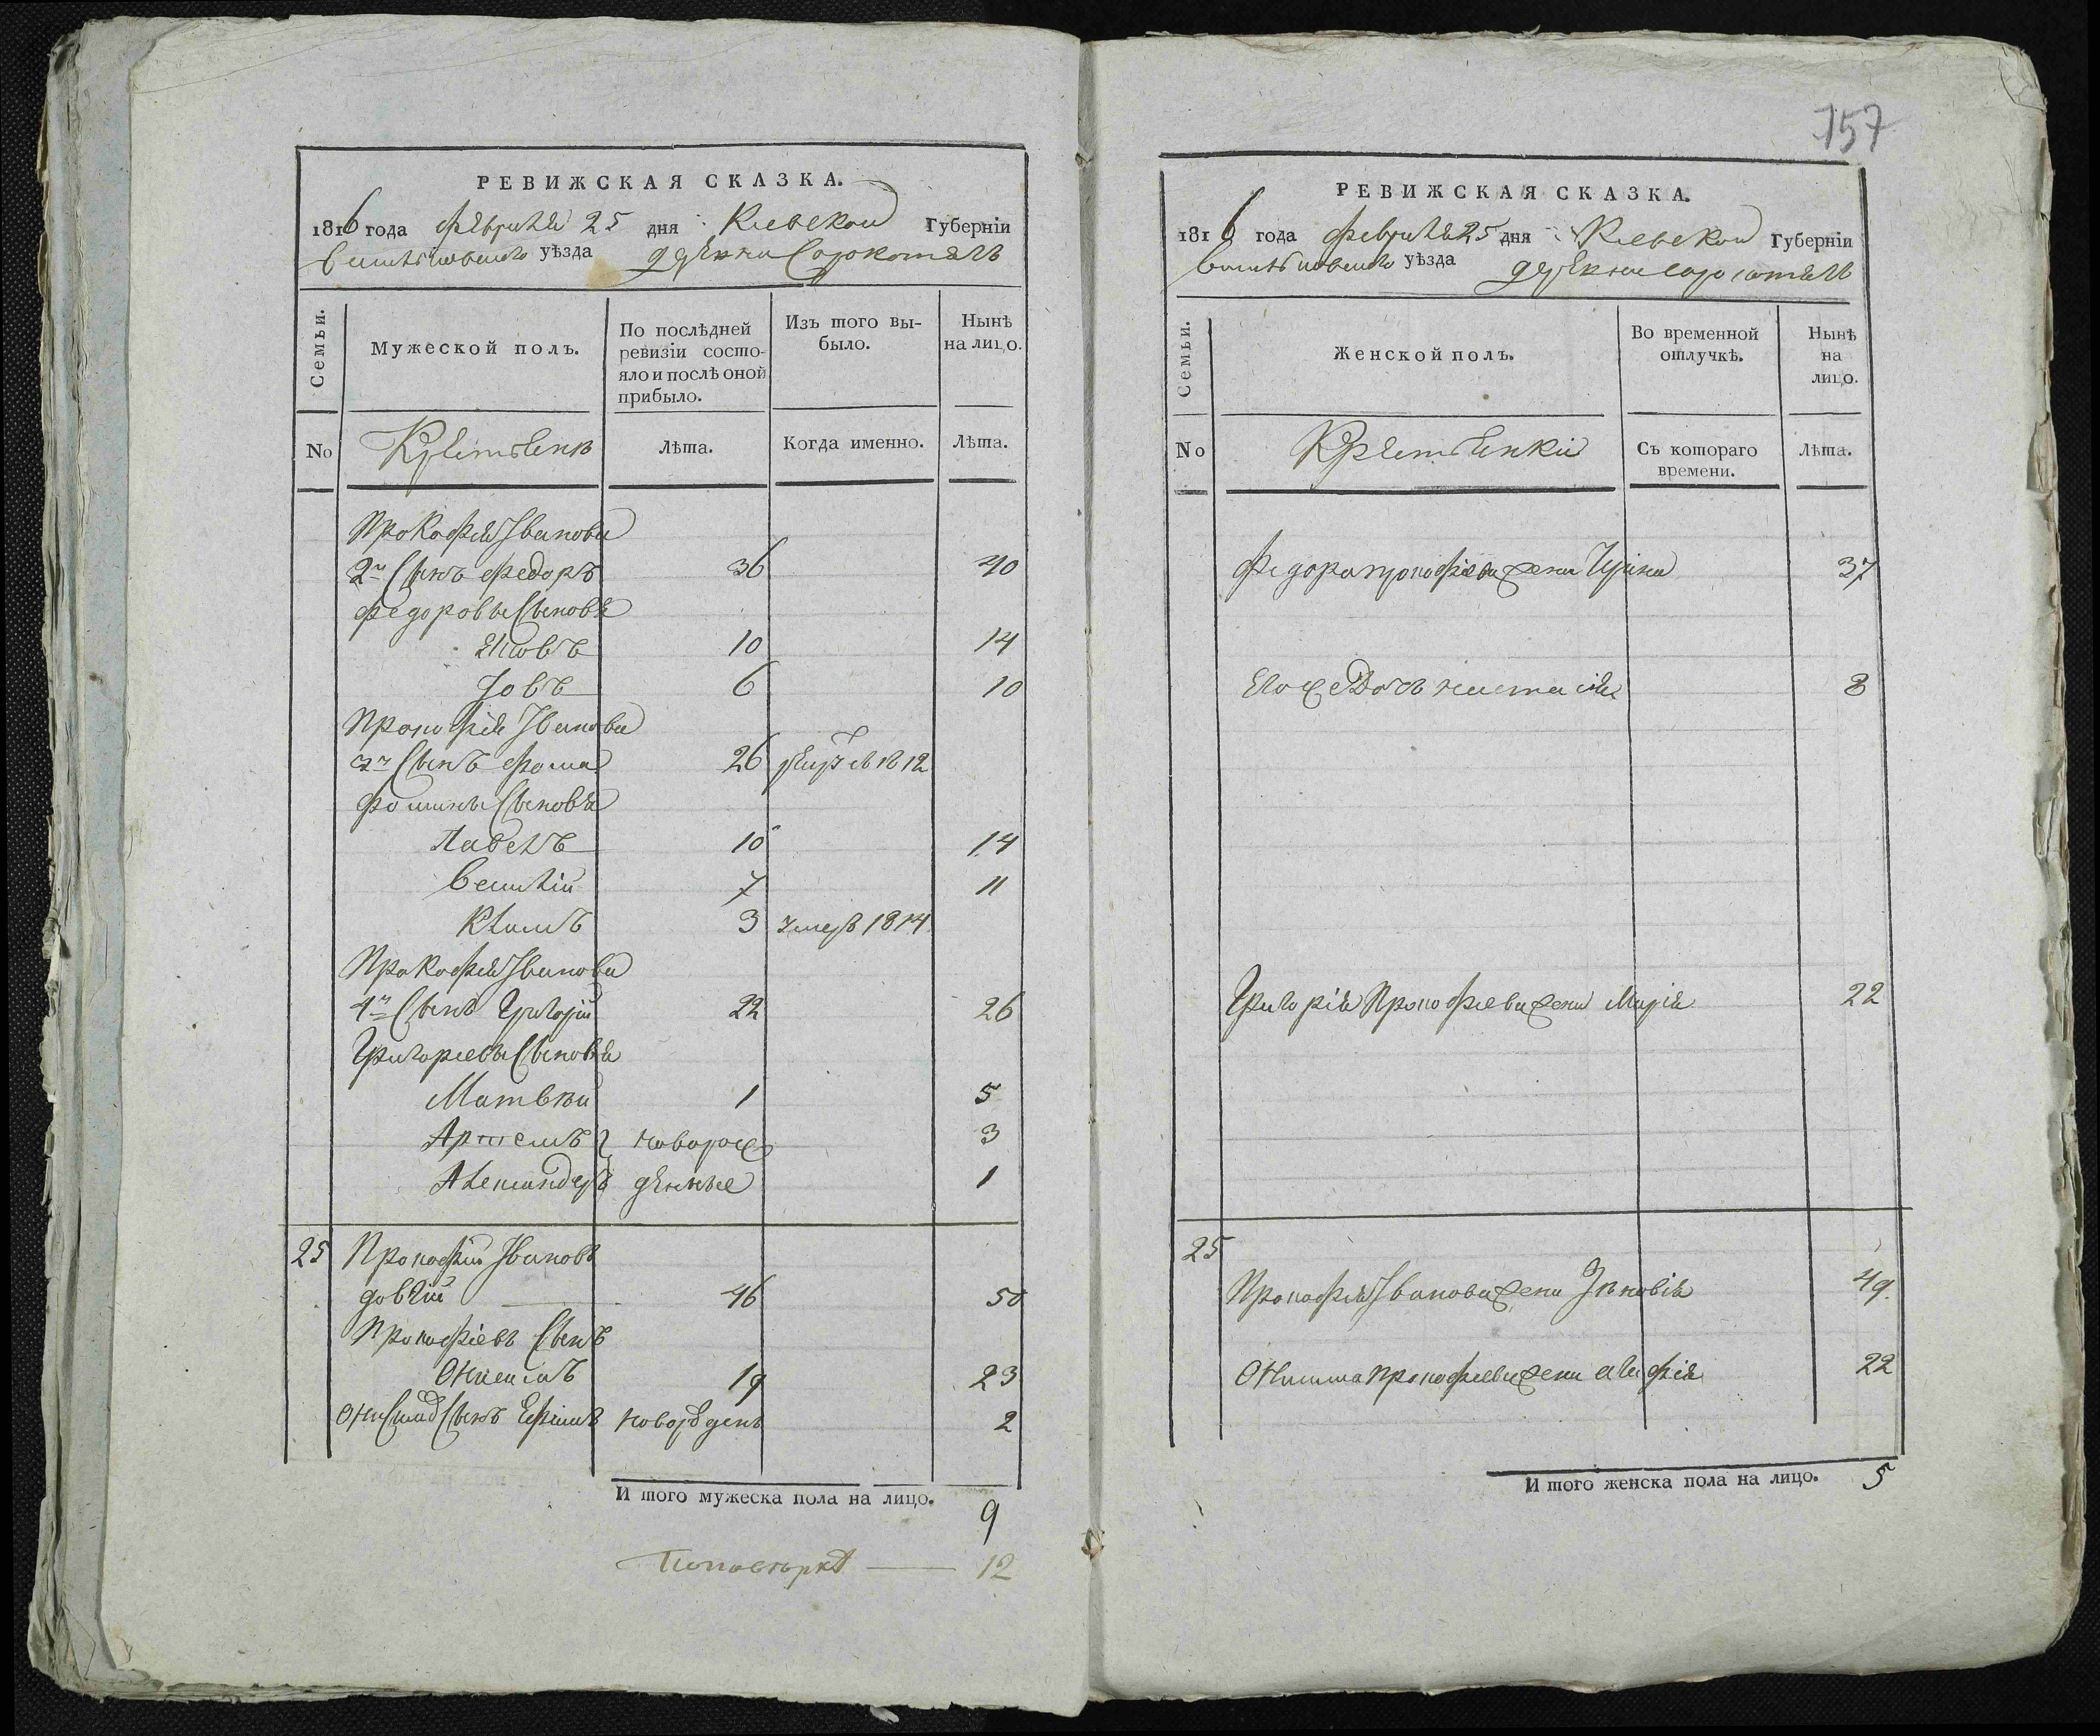 РЕВИЖСКАЯ СКАЗКА.
1816 года февраля 25 дня Киевской Губерніи
Васильковского уѣзда деревни Сорокотягъ
Семьи.
Мужеской полъ.
По послѣдней ревизіи состояло и послѣ оной прибыло.
Изъ того выбыло.
Нынѣ на лицо.
No
Лѣта.
Когда именно.
Лѣта.
Прокофія Іванова
2й Сынъ Федоръ 36 40
Федоровы Сыновя
Яковъ 10 14
Іовъ 6 10
Прокофія Іванова
3й Сынъ Фома 26 1812
Фомины Сыновя
Павелъ 10 14
Василій 7 11
Климъ 3 умеръ 1814
Прокофія Іванова
4й Сынъ Григорій 22 26
Григориевы Сыновя
Матвѣй 1 5
Артемъ новорож 3
Александеръ денные 1
25 Прокофій Івановъ
46 50
Прокофіевъ Сынъ
Онисимъ 19 23
Сынъ Ефимъ новорожденъ 2
И того мужеска пола на лицо. 9
12
157
РЕВИЖСКАЯ СКАЗКА.
1816 года февраля 25 дня Киевской Губерніи
Васильковского уѣзда деревни Сорокотягъ
Семьи.
Женской полъ.
Во временной отлучкѣ.
Нынѣ на лицо.
No
Съ котораго времени.
Лѣта.
Федора Прокофіева жена Ірина 37
Его же Дочь Настасія 8
Григорія Прокофиева жена Марія 22
25
Прокофія Іванова жена Зѣновія 49.
Онисима Прокофиева жена Агафія 22
И того женска пола на лицо. 5